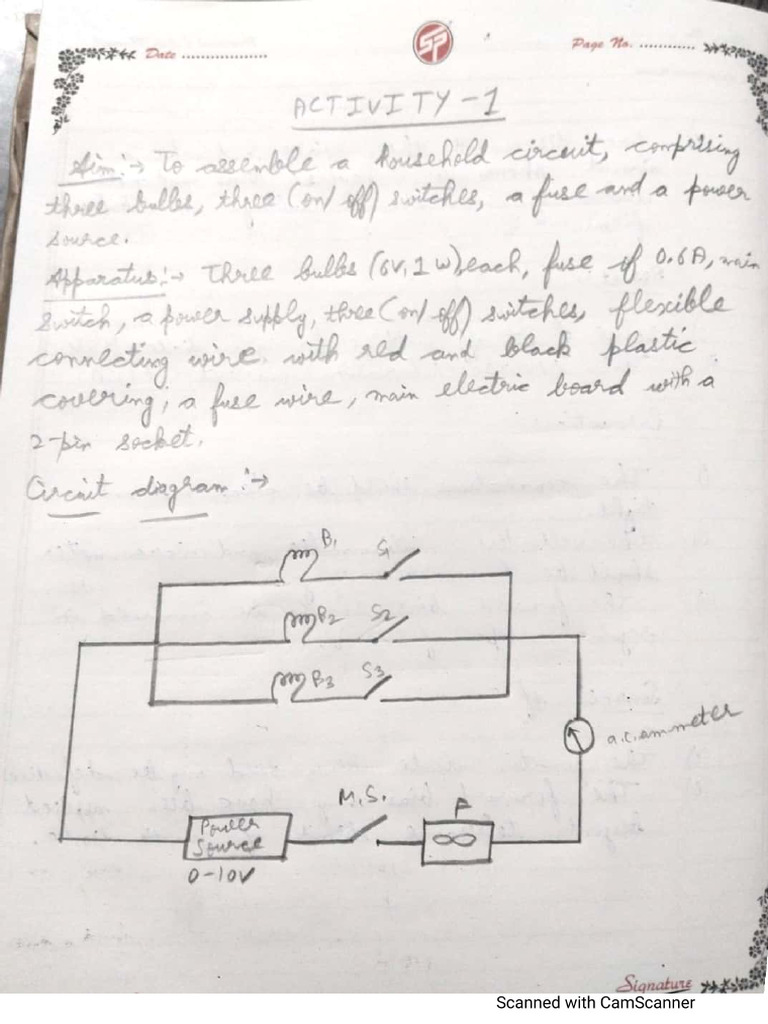 Date ..................
SP
Page No. ............
ACTIVITY-1
Aim:→ To assemble a household circuit, comprising
three bulbs, three (on/off) switches, a fuse and a power
source.
Apparatus:→ Three bulbs (6V, 1 W) each, fuse of 0.6A, main
switch, a power supply, three (on/off) switches, flexible
connecting wire with red and black plastic
covering, a fuse wire, main electric board with a
2-pin socket.
Circuit diagram:→
B1 S1
B2 S2
B3 S3
a.c. ammeter
M.S. F
Power
Source
0-10V
Signature
Scanned with CamScanner